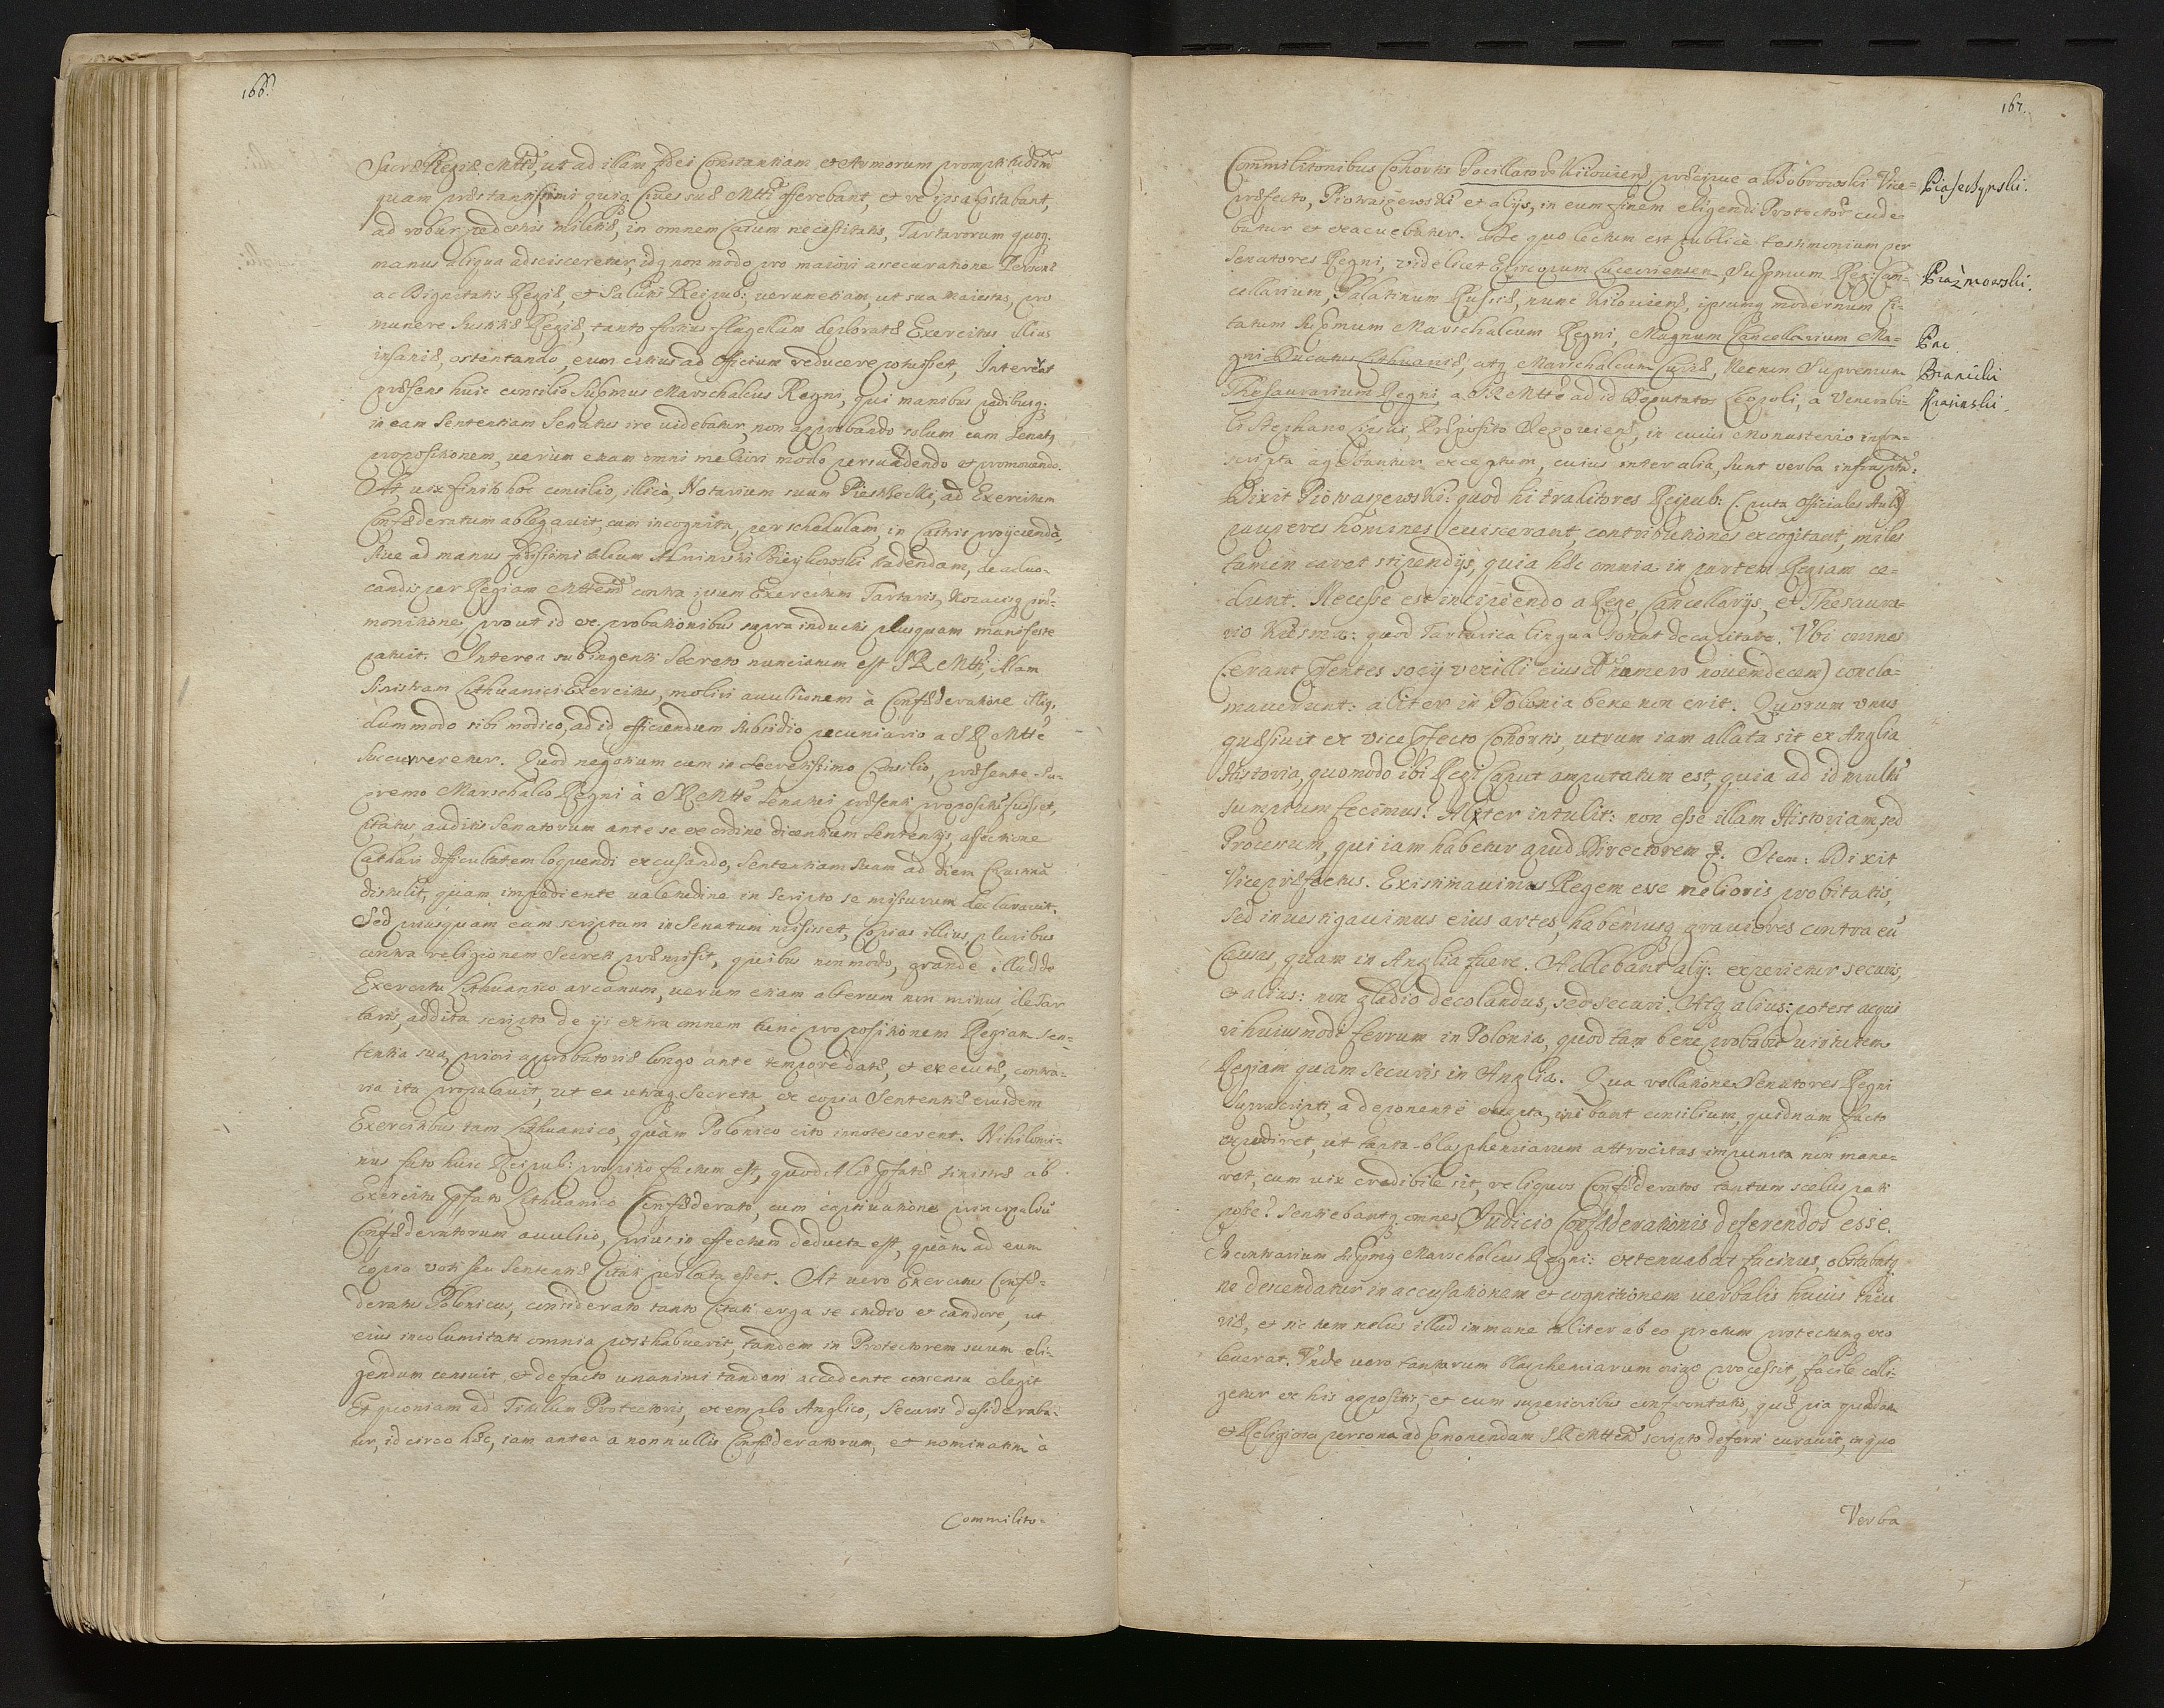 166.
Sacræ Regiæ Mttis, ut ad illam fidei Constantiam et Armorum promptitudinem
quam præstantissimi quiq Cives suæ Mtti offerebant, et re ipsa præstabant,
ad robur pedestris militiæ, in omnem Casum necessitatis, Tartarorum quoq
manus aliqua adscisceretur, idq non modo pro maiori assecuratione Personæ
ac Dignitatis Regiæ, et Salutis Reipub: verumetiam, ut sua Maiestas, pro
munere Iustitiæ Regiæ, tanto fortius flagellum deploratæ Exercitus illius
insaniæ, ostentando, eum citius ad Officium reducere potuisset, Intererat
præsens huic consilio Supmus Marschalcus Regni, qui manibus pedibusq
in eam Sententiam Senatus ire videbatur, non approbando solum eam Senatq
propositionem, verum etiam omni meliori modo persuadendo et promovendo.
At, vix finito hoc consilio, illico, Notarium suum Piestrzecki, ad Exercitum
Confæderatum ablegavit, cum incognita, per schedulam, in Castris proijcienda,
sive ad manus tradendam, de advo-
candis per Regiam Mttem contra ipsum Exercitum Tartaris, Kozacisq præ-
monitione, prout id ex probationibus supra inductis plusquam manifeste
patuit. Interea sub ingenti Secreto nunciatum est S R Mtti, Alam
sinistram Lithuanici Exercitus, moliri avulsionem à Confæderatione illiq,
dummodo sibi modico, ad id efficiendum subsidio pecuniario a S R Mtte
succurreretur. Quod negotium cum in secretissimo Consilio, præsente Su-
premo Marschalco Regni à S R Mtte Senatui præsenti propositū fuisset,
Citatus, auditis Senatorum ante se ex ordine dicentium Sententijs, affectione
Catharri difficultatem loquendi excusando, Sententiam suam ad diem Crastinā
distulit, quam impediente valetudine in scripto se missurum declaravit.
Sed priusquam eam scriptam in Senatum misisset, Copias illius pluribus
contra religionem Secreti præmisit, quibus non modo, grande illud de
Exercitu Lithuanico arcanum, verum etiam alterum non minus, de Tar
taris, addita scripto de ijs extra omnem tunc propositionem Regiam sen-
tentia sua, priori approbatoriæ longo ante tempore datæ, et executæ, contra-
ria ita propalavit, ut ea utraq Secreta, ex copia Sententiæ eiusdem
Exercitibus tam Lithuanico, quàm Polonico cito innotescerent. Nihilomi-
nus fato huic Reipub: propitio factum est, quod Alæ pfatæ sinistræ ab
Exercitu pfato Lithuanico Confæderato, cum captivatione principaliū
Confæderatorum avulsio, prius in effectum deducta est, quàm ad eum
copia voti seu Sententiæ Citati perlata esset. At vero Exercitus Confæ-
deratus Polonicus, considerato tanto Citati erga se studio et candore, ut
eius incolumitati omnia posthabuerit, tandem in Protectorem suum eli-
gendum censuit, et de facto unanimi tandem accedente consensu elegit
Et quoniam ad Titulum Protectoris, exemplo Anglico, Securis desideraba-
tur, id circo hæc, iam antea a nonnullis Confæderatorum, et nominatim à
Commilito-
167.
Commilitonibus Cohortis Pocillatoris Kijoviens, præcipue a Bobrowski Vice-
præfecto, Piotraszewski et alijs, in eum finem eligendi Protectoris cude-
batur et exacuebatur. De quo lectum est publicè testimonium per
Senatores Regni, videlicet Episcopum Luceoriensem, Supmum Regni Can-
cellarium, Palatinum Russiæ, nunc Kijoviens, ipsumq modernum Ci-
tatum Supmum Marschalcum Regni, Magnum Cancellarium Ma-
gni Ducatus Lithuaniæ, atq Marschalcum Curiæ, Necnon Supremum
Thesaurarium Regni, a S R Mtte ad id Deputatos Leopoli, a Venerabi-
li Stephano Præposito in cuius Monasterio infra-
scripta agebantur exceptum, cuius inter alia, sunt verba infrascpta:
Dixit Piotraszewski: quod hi traditores Reipub: (puta Officiales Aulæ)
pauperes homines eviscerant, contributiones excogitant, miles
tamen caret stipendijs, quia hæc omnia in partem Regiam ce-
dunt. Necesse est incipiendo a Rege, Cancellarijs, et Thesaura-
rio Kiesma: quod Tartarica lingua sonat decapitare. Vbi omnes
(erant psentes socij vexilli eiusd numero novemdecem) concla-
maverunt: aliter in Polonia bene non erit. Quorum vnus
quæsivit ex Vice pfecto Cohortis, utrum iam allata sit ex Anglia
Historia, quomodo ibi Regi Caput amputatum est, quia ad id multū
sumptum fecimus? Alter intulit: non esse illam Historiam, sed
Procerum, qui iam habetur apud Directorem &. Item: Dixit
Vicepræfectus. Existimavimus Regem esse melioris probitatis,
sed investigavimus eius artes, habemusq graviores contra eū
Causas, quam in Anglia fuere. Addebant alij: experietur securis,
et alius: non gladio decolandus, sed securi. Atq alius: potest acqui
ri huiusmodi ferrum in Polonia, quod tam bene probabit virtutem
Regiam quàm securis in Anglia. Qua Senatores Regni
suprascripti, a deponente excepta, inibant consilium, quidnam facto
expediret, ut tanta blasphemiarum attrocitas impunita non mane-
ret, cum vix credibile sit, reliquos Confæderatos tantum scelus pati
posse? Sentiebantq omnes Iudicio Confæderationis deferendos esse.
In contrarium Supmq Marschalcus Regni: extenuabat facinus, obstabatq
ne descendatur in accusationem et cognitionem verbalis huius iniu
riæ, et sic tum nefas illud immane taliter ab eo pretum protectumq exo
leverat. Vnde vero tantarum blasphemiarum origo processit, facile colli-
getur ex his appositis, et cum superioribus confrontatis, quæ pia quædam
et Religiosa persona ad pmonendum S R Mttem scripto deferri curavit, in quo
Verba
Piaseczynski.
Prażmowski.
Pac.
Branicki
Krasinski.